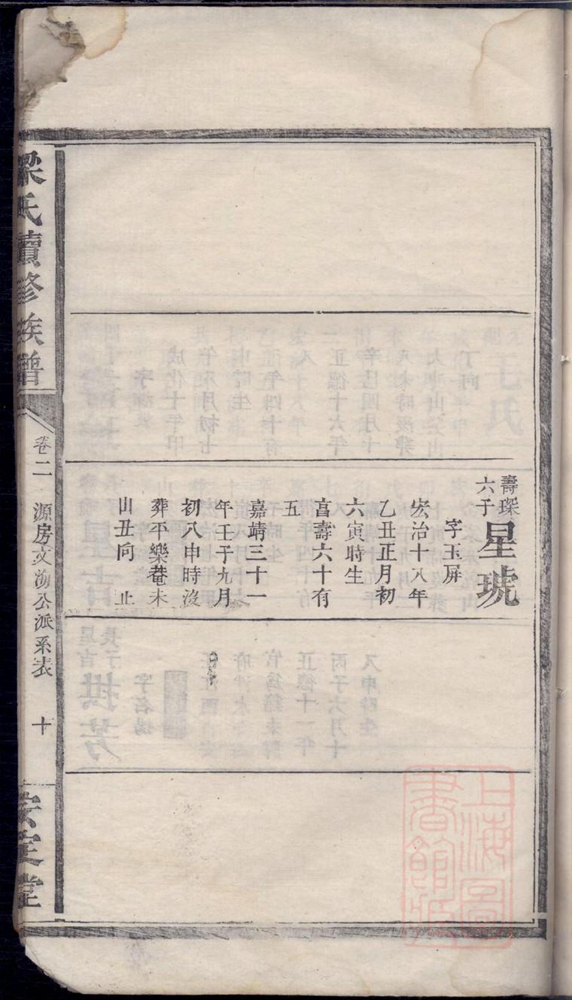 壽琛
六子
星琥
字玉屏
宏治十八年
乙丑正月初
六寅時生
享壽六十有
五
嘉靖三十一
年壬子九月
初八申時沒
葬平樂菴未
山丑向 止
梁氏續修族譜
卷二 源房文公派系表 十
安定堂
上海圖
書館藏